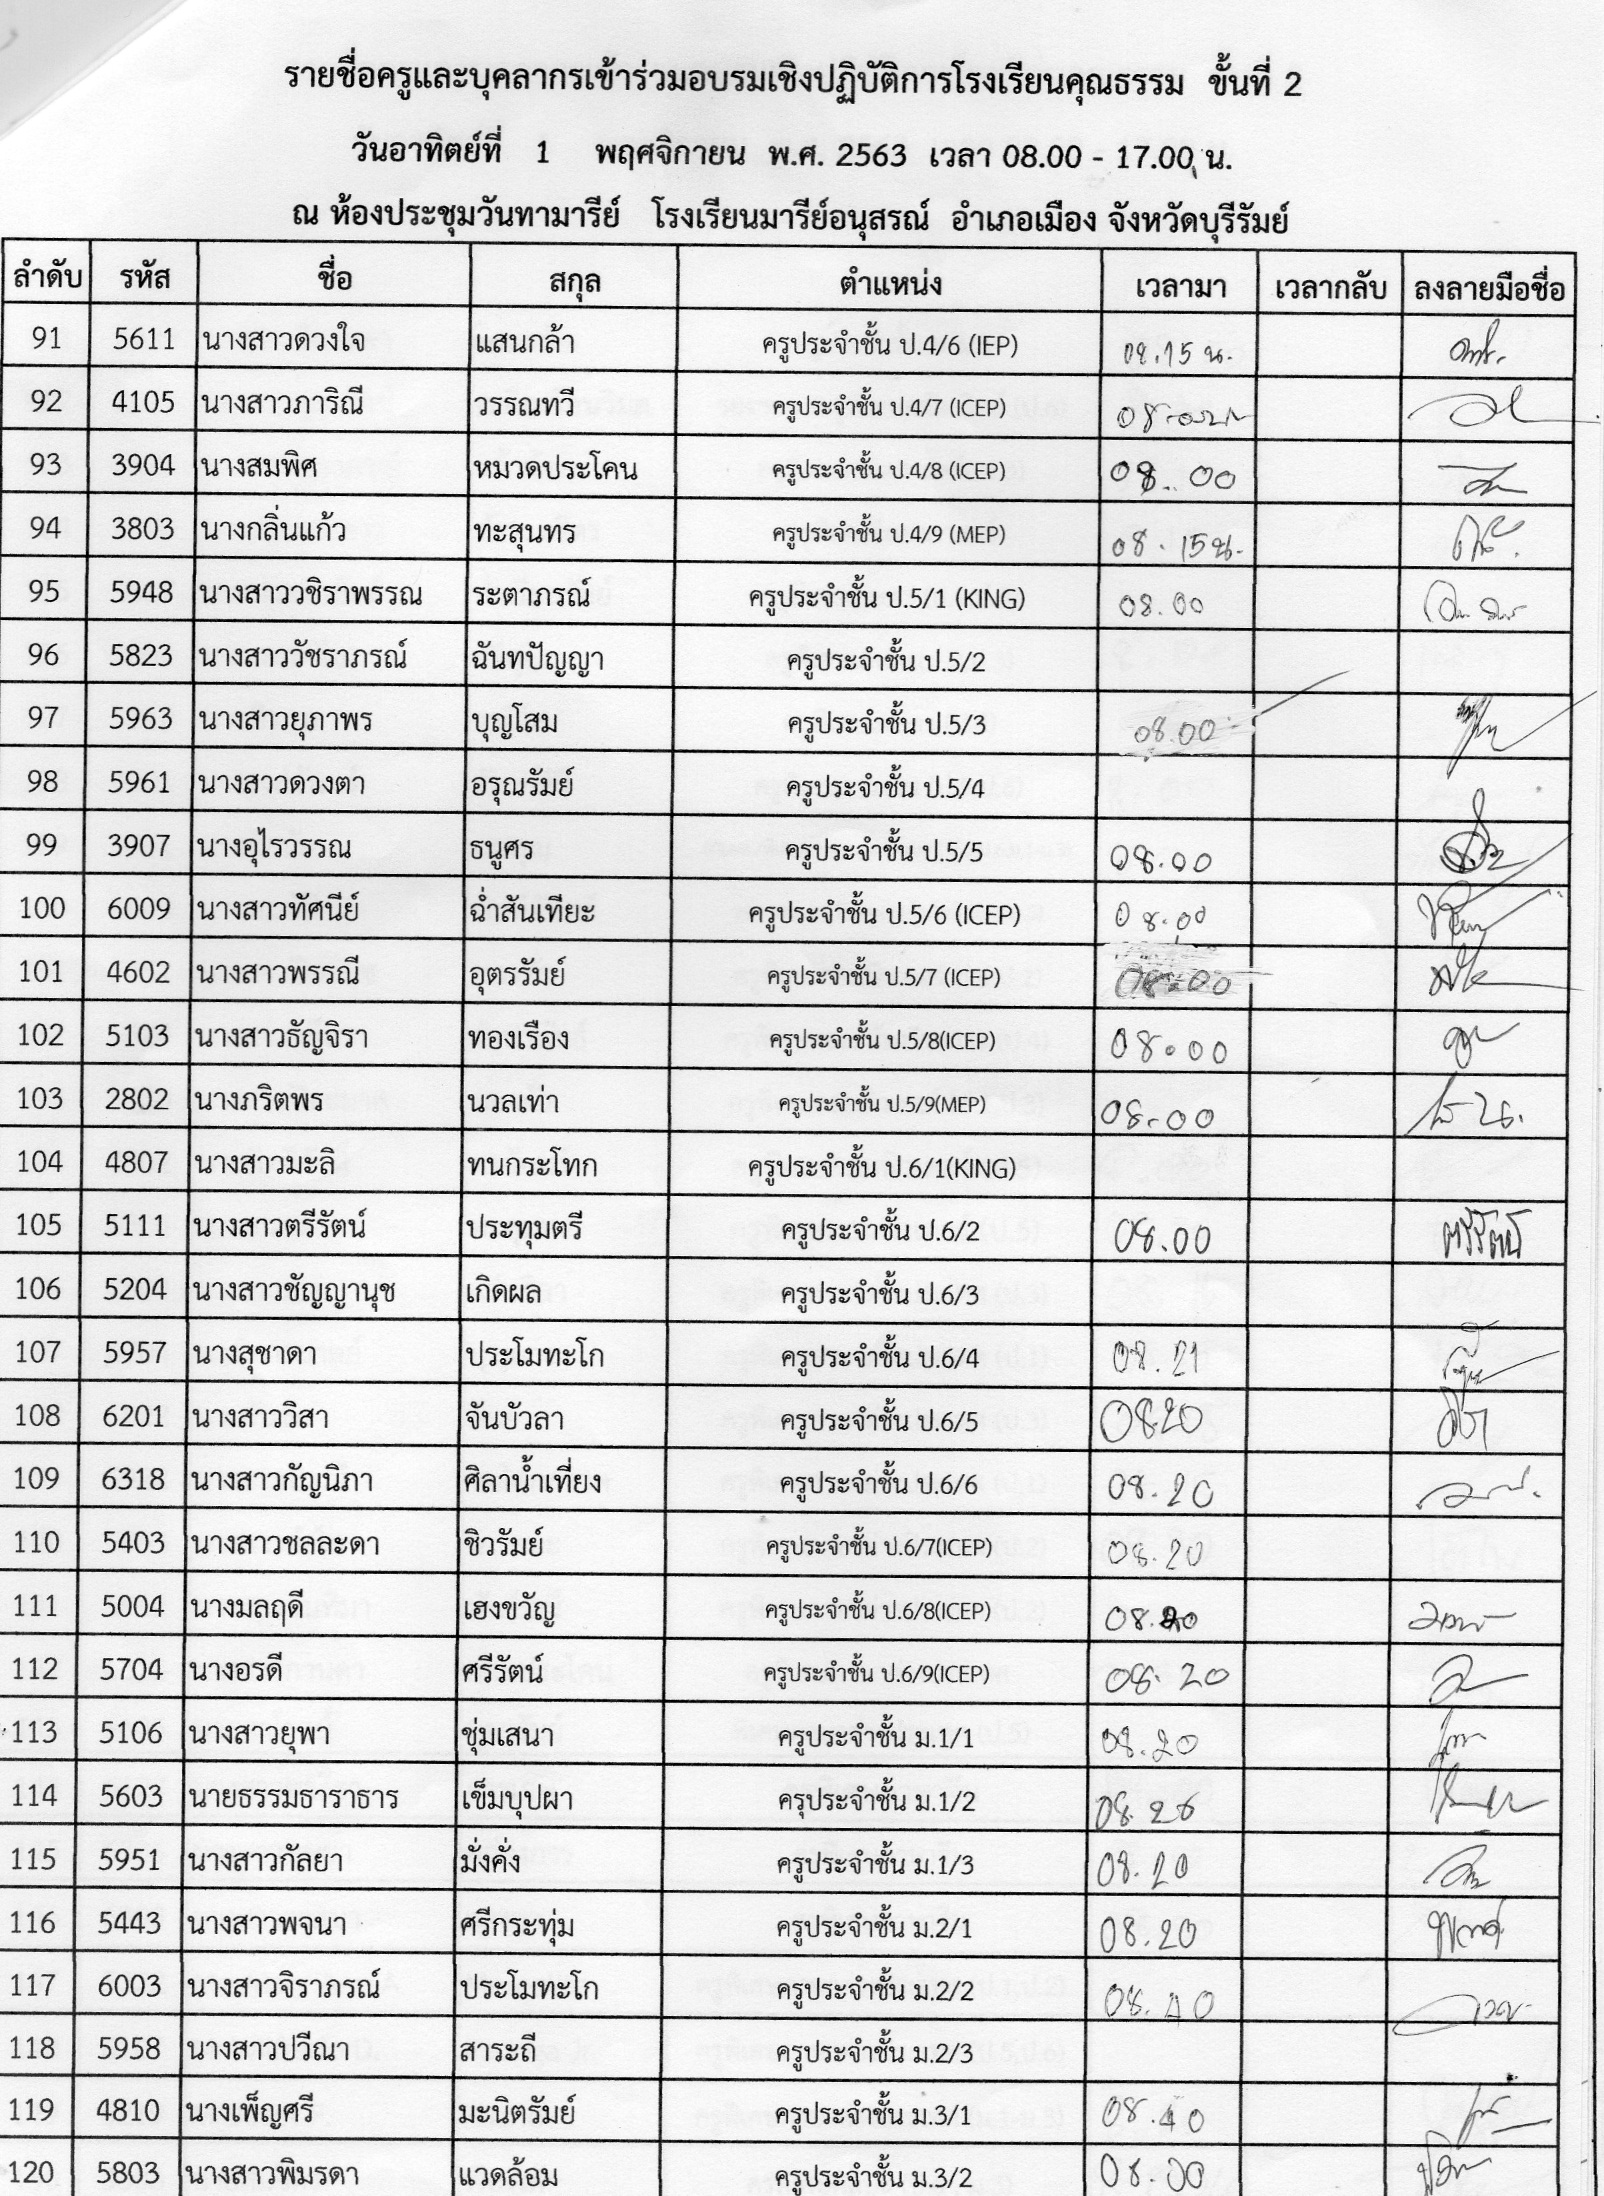 รายชื่อครูและบุคลากรเข้าร่วมอบรมเชิงปฏิบัติการโรงเรียนคุณธรรม ขั้นที่ 2
วันอาทิตย์ที่ 1 พฤศจิกายน พ.ศ. 2563 เวลา 08.00 - 17.00 น.
ณ ห้องประชุมวันทามารีย์ โรงเรียนมารีย์อนุสรณ์ อำเภอเมือง จังหวัดบุรีรัมย์
ลำดับ รหัส ชื่อ สกุล ตำแหน่ง เวลามา เวลากลับ ลงลายมือชื่อ
91 5611 นางสาวดวงใจ แสนกล้า ครูประจำชั้น ป.4/6 (IEP) 08.15 น.
92 4105 นางสาวภาริณี วรรณทวี ครูประจำชั้น ป.4/7 (ICEP)
93 3904 นางสมพิศ หมวดประโคน ครูประจำชั้น ป.4/8 (ICEP) 08.00
94 3803 นางกลิ่นแก้ว ทะสุนทร ครูประจำชั้น ป.4/9 (MEP) 08.15น.
95 5948 นางสาววชิราพรรณ ระตาภรณ์ ครูประจำชั้น ป.5/1 (KING) 08.00
96 5823 นางสาววัชราภรณ์ ฉันทปัญญา ครูประจำชั้น ป.5/2
97 5963 นางสาวยุภาพร บุญโสม ครูประจำชั้น ป.5/3 08.00
98 5961 นางสาวดวงตา อรุณรัมย์ ครูประจำชั้น ป.5/4
99 3907 นางอุไรวรรณ ธนูศร ครูประจำชั้น ป.5/5 08.00
100 6009 นางสาวทัศนีย์ ฉ่ำสันเทียะ ครูประจำชั้น ป.5/6 (ICEP) 08.00
101 4602 นางสาวพรรณี อุตรรัมย์ ครูประจำชั้น ป.5/7 (ICEP) 08.00
102 5103 นางสาวธัญจิรา ทองเรือง ครูประจำชั้น ป.5/8(ICEP) 08.00
103 2802 นางภริตพร นวลเท่า ครูประจำชั้น ป.5/9(MEP) 08.00
104 4807 นางสาวมะลิ ทนกระโทก ครูประจำชั้น ป.6/1(KING)
105 5111 นางสาวตรีรัตน์ ประทุมตรี ครูประจำชั้น ป.6/2 08.00 ตรีรัตน์
106 5204 นางสาวชัญญานุช เกิดผล ครูประจำชั้น ป.6/3
107 5957 นางสุชาดา ประโมทะโก ครูประจำชั้น ป.6/4 08.21
108 6201 นางสาววิสา จันบัวลา ครูประจำชั้น ป.6/5 0820
109 6318 นางสาวกัญนิภา ศิลาน้ำเที่ยง ครูประจำชั้น ป.6/6 08.20
110 5403 นางสาวชลละดา ชิวรัมย์ ครูประจำชั้น ป.6/7(ICEP) 08.20
111 5004 นางมลฤดี เฮงขวัญ ครูประจำชั้น ป.6/8(ICEP) 08.20
112 5704 นางอรดี ศรีรัตน์ ครูประจำชั้น ป.6/9(ICEP) 08.20
113 5106 นางสาวยุพา ชุ่มเสนา ครูประจำชั้น ม.1/1 08.20
114 5603 นายธรรมธาราธาร เข็มบุปผา ครุประจำชั้น ม.1/2 08.26
115 5951 นางสาวกัลยา มั่งคั่ง ครูประจำชั้น ม.1/3 08.20
116 5443 นางสาวพจนา ศรีกระทุ่ม ครูประจำชั้น ม.2/1 08.20
117 6003 นางสาวจิราภรณ์ ประโมทะโก ครูประจำชั้น ม.2/2 08.40
118 5958 นางสาวปวีณา สาระถี ครูประจำชั้น ม.2/3
119 4810 นางเพ็ญศรี มะนิตรัมย์ ครูประจำชั้น ม.3/1 08.40
120 5803 นางสาวพิมรดา แวดล้อม ครูประจำชั้น ม.3/2 08.00